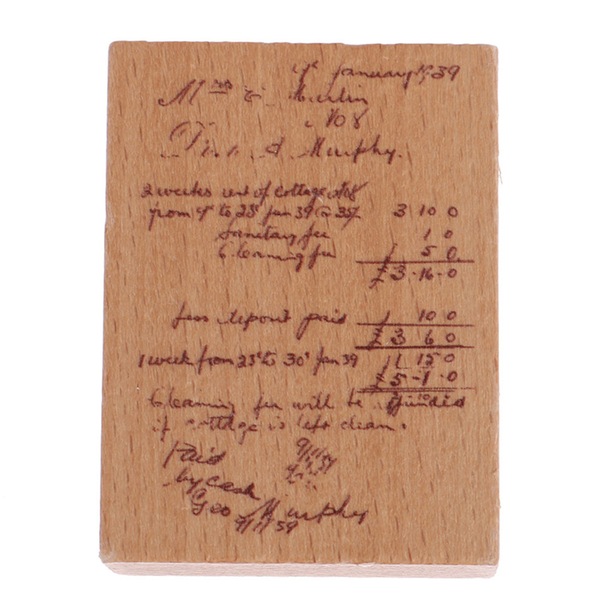 January 1939
Martin
No 8
Murphy.
2 weeks rent of Cottage No8
from 9th to 23rd Jan 39 @ 35/ 3 10 0
Sanitary fee 1 0
Cleaning fee 5 0
£3-16-0
less deposit paid 10 0
£3 6 0
1 week from 23rd to 30th Jan 39 1 15 0
£5-1-0
Cleaning fee will be
if cottage is left clean.
Paid
by cash
Geo Murphy